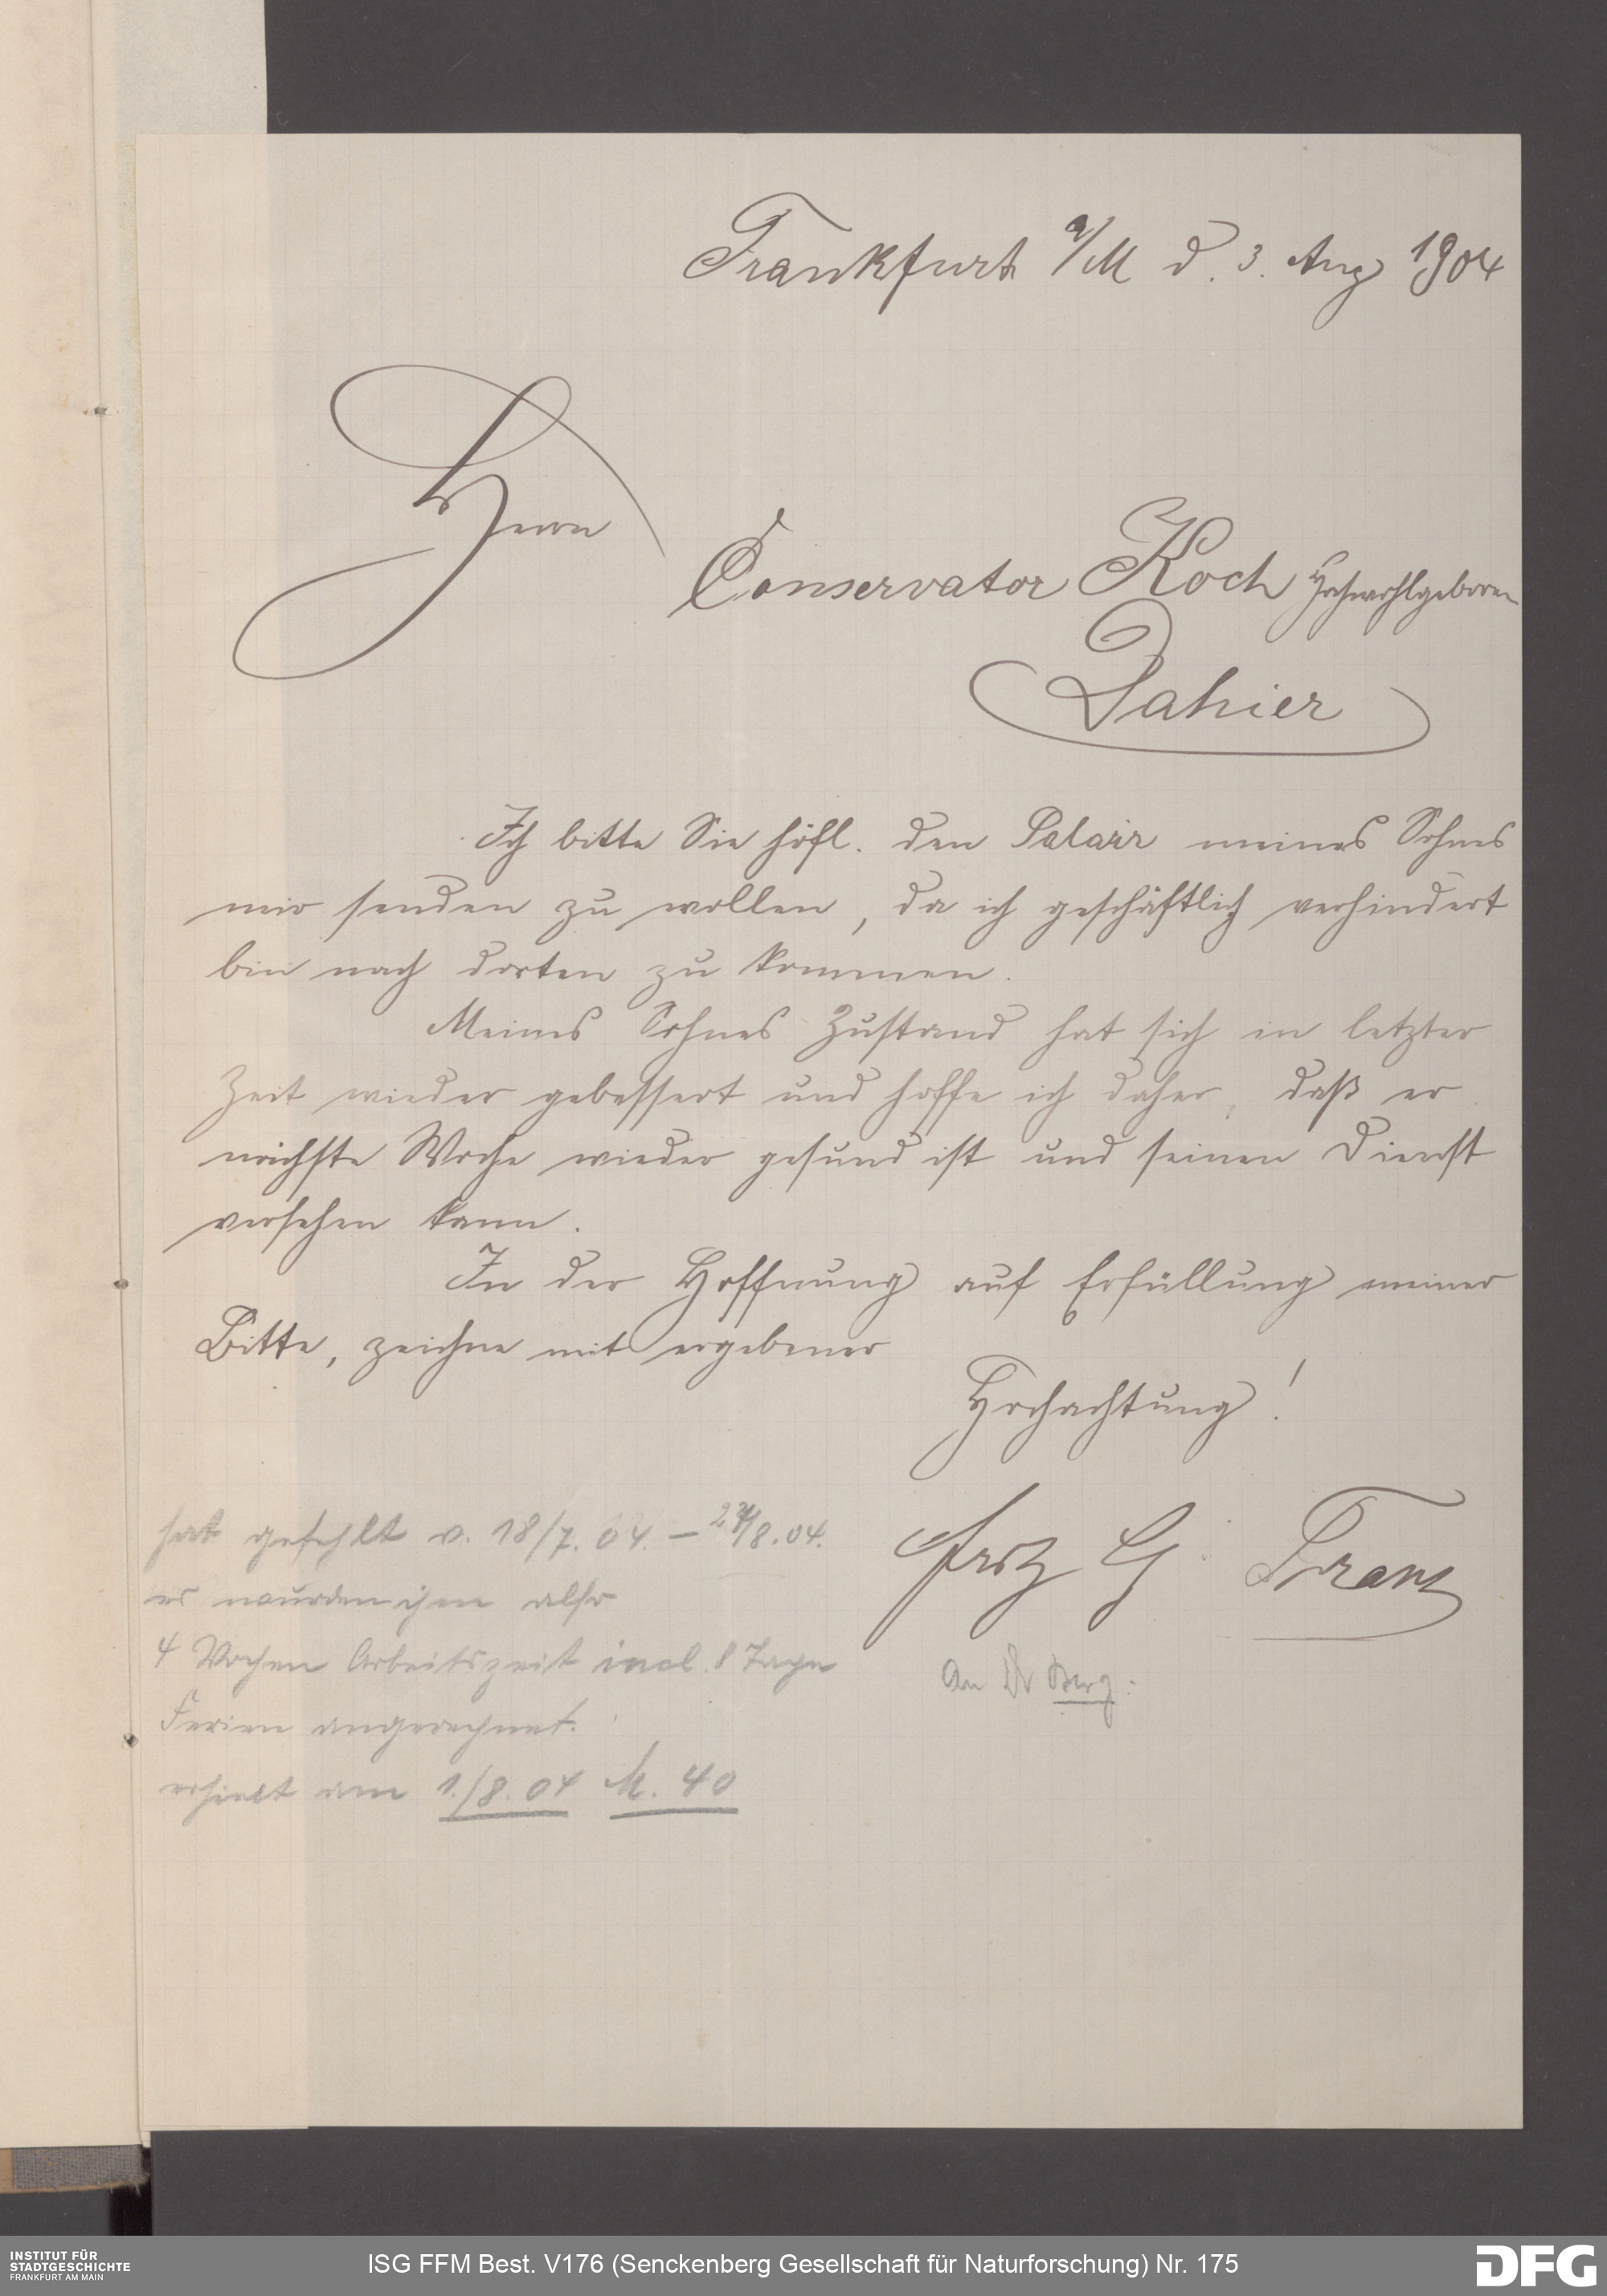 Frankfurt a/M d. 3. Aug 1904
Herrn
Conservator Koch Hochwohlgeboren
Dahier
Ich bitte Sie höfl. den Salair meines Sohnes
mir senden zu wollen, da ich geschäftlich verhindert
bin nach dorten zu kommen.
Meines Sohnes Zustand hat sich in letzter
Zeit wieder gebessert und hoffe ich daher, daß er
nächste Woche wieder gesund ist und seinen Dienst
versehen kann.
In der Hoffnung auf Erfüllung meiner
Bitte, zeichne mit ergebener
Hochachtung!
G. Franz
hat gefehlt v. 18/7. 04. – /8.04.
es wurden ihm also
4 Wochen Arbeitszeit incl. 8 Tage
Ferien angerechnet.
erhielt am 1./8. 04 M. 40
An Dr
INSTITUT FÜR
STADTGESCHICHTE
FRANKFURT AM MAIN
ISG FFM Best. V176 (Senckenberg Gesellschaft für Naturforschung) Nr. 175
DFG